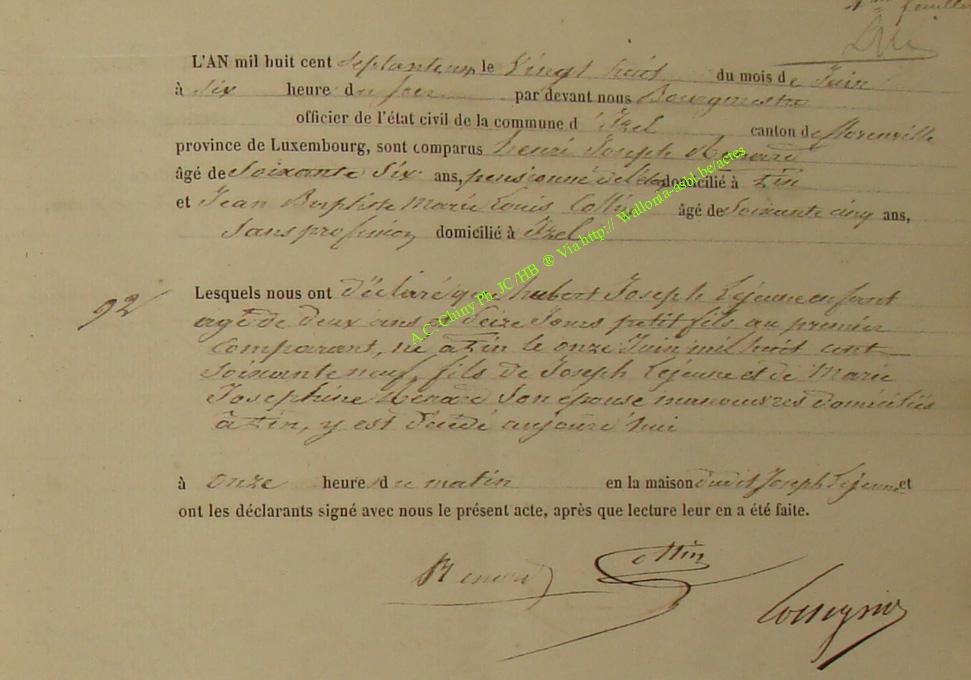 1er feuillet
L'AN mil huit cent Septante un le Vingt huit du mois de Juin
à Six heure du soir par devant nous Bourgmestre
officier de l'état civil de la commune d'Izel canton de florenville
province de Luxembourg, sont comparus henri Joseph Renard
âgé de Soixante Six ans, pensionné de l'état domicilié à Tin
et Jean Baptiste Marie Louis Collin âgé de Soixante cinq ans,
Sans profession domicilié à Izel
92
Lesquels nous ont déclaré que hubert Joseph Lejeune enfant
agé de deux ans et Seize Jours petit fils au premier
Comparant, né à Tin le onze Juin mil huit cent
Soixante neuf, fils de Joseph Lejeune et de Marie
Josephine Renard Son epouse manœuvres domiciliés
à Tin, y est décédé aujourd'hui
à onze heure du matin en la maison dudit Joseph Lejeune et
ont les déclarants signé avec nous le présent acte, après que lecture leur en a été faite.
Renard Collin
A.C. Chiny Ph. JC/HB ® Via http:// Wallonia-asbl.be/actes